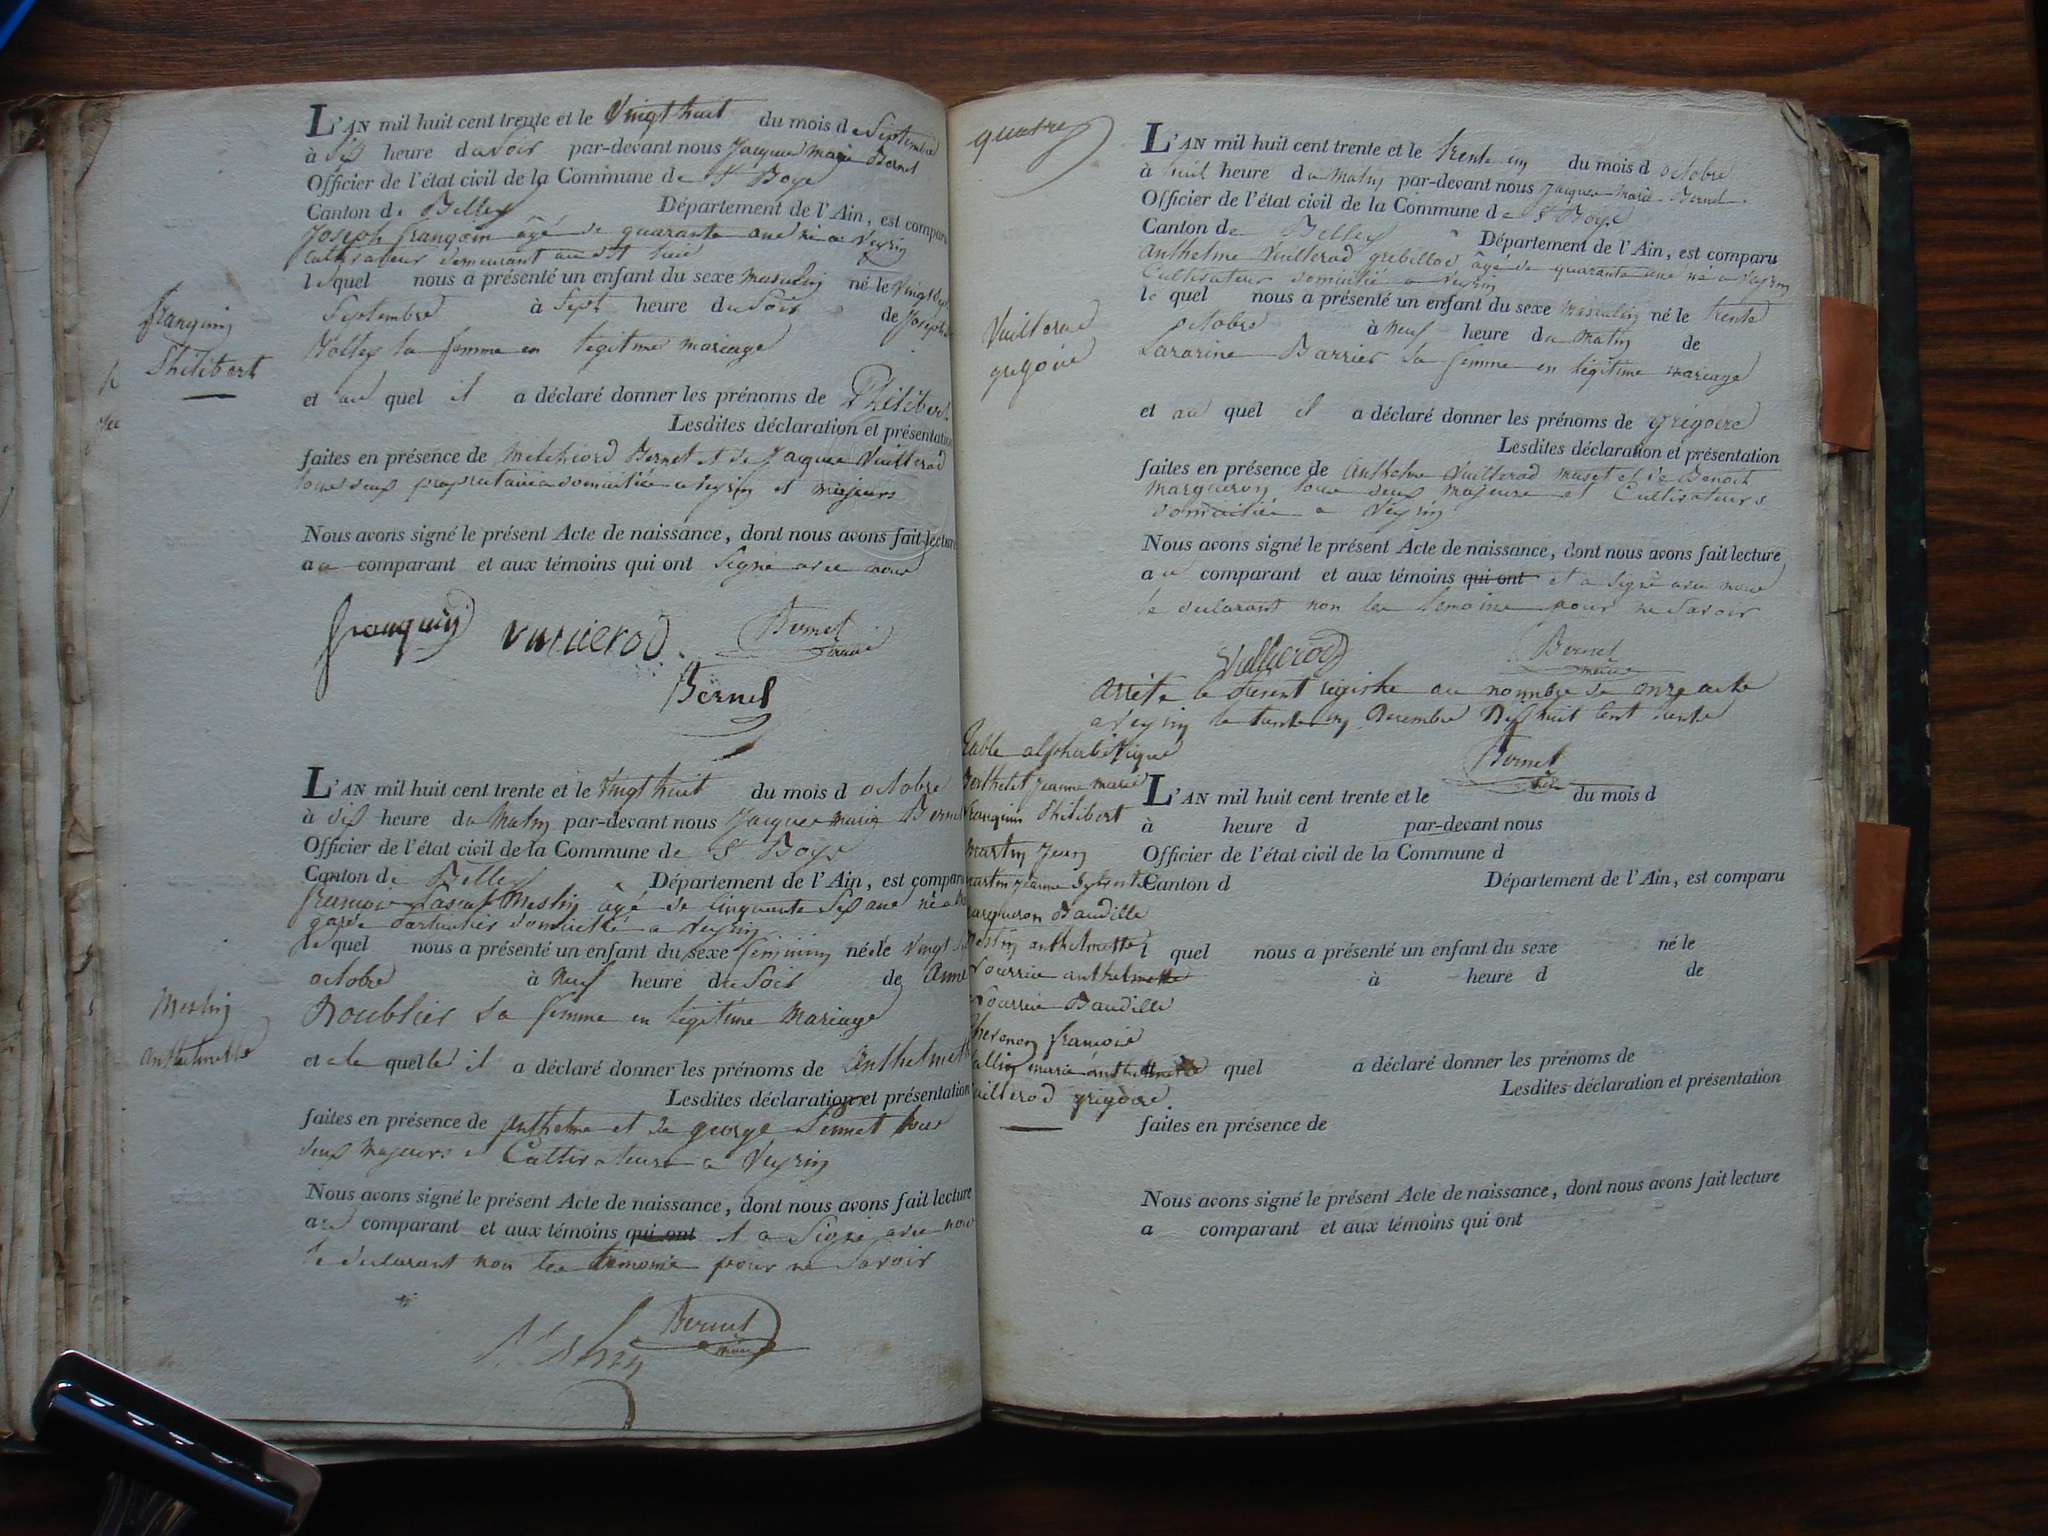 franquin
Philibert
L'AN mil huit cent trente et le Vingt huit du mois de Septembre
à Six heure du Soir par-devant nous Jacques Marie Bernet
Officier de l'état civil de la Commune de St Boys
Canton de Belley Département de l'Ain, est comparu
Joseph franquin âgé de quarante ans né a Veyrin
Cultivateur demeurant au dit lieu
le quel nous a présenté un enfant du sexe masculin né le Vingt
Septembre à Sept heure du Soir de Josephte
la femme en legitime mariage
et au quel il a déclaré donner les prénoms de Philibert
Lesdites déclaration et présentation
faites en présence de Melchiord Bernet et de Jacques Vuillerod
tous deux proprietaires domiciliés a Veyrin et majeurs
Nous avons signé le présent Acte de naissance, dont nous avons fait lecture
au comparant et aux témoins qui ont Signé avec nous
franquin Vuillerod Bernet
maire
Bernet
Meslin
anthelmette
L'AN mil huit cent trente et le Vingt huit du mois d octobre
à dix heure du Matin par-devant nous Jacques marie Bernet
Officier de l'état civil de la Commune de St Boys
Canton de Belley Département de l'Ain, est comparu
francois Meslin âgé de cinquante Six ans né a
domicilié a Veyrin
le quel nous a présenté un enfant du sexe feminin né le Vingt
octobre à Neuf heure du Soir de Anne
Roublier Sa femme en legitime Mariage
et a la quelle il a déclaré donner les prénoms de Anthelmette
Lesdites déclaration et présentation
faites en présence de Anthelme et de george tous
deux Majeurs et Cultivateurs a Veyrin
Nous avons signé le présent Acte de naissance, dont nous avons fait lecture
au comparant et aux témoins qui ont et a Signé avec nous
le declarant non les temoins pour ne Savoir
Meslin Bernet
maire
quatre
Vuillerod
gregoire
L'AN mil huit cent trente et le trente un du mois d octobre
à huit heure du Matin par-devant nous Jacques Marie Bernet
Officier de l'état civil de la Commune de St Boys
Canton de Belley Département de l'Ain, est comparu
Anthelme Vuillerod grebillod âgé de quarante ans né a Veyrin
Cultivateur domicilié a Veyrin
le quel nous a présenté un enfant du sexe Masculin né le trente
octobre à Neuf heure du Matin de
Barrier Sa femme en légitime mariage
et au quel il a déclaré donner les prénoms de grégoire
Lesdites déclaration et présentation
faites en présence de Anthelme Vuillerod muset et de Benoit
Marqueron tous deux majeurs et Cultivateurs
domiciliés a Veyrin
Nous avons signé le présent Acte de naissance, dont nous avons fait lecture
au comparant et aux témoins qui ont et a Signé avec nous
le declarant non les temoins pour ne Savoir
Vuillerod Bernet
maire
Arrêté le present registre au nombre de onze acte
a Veyrin le trente un Decembre Dix huit Cent trente
Bernet
maire
Table alphabétique
Berthelet Jeanne marie
franquin Philibert
Martin Jean
Martin Jeanne
Marqueron Baudille
Meslin anthelmette
anthelmette
Baudille
francois
marie anthelmette
Vuillerod grégoire
L'AN mil huit cent trente et le du mois d
à heure d par-devant nous
Officier de l'état civil de la Commune d
Canton d Département de l'Ain, est comparu
l quel nous a présenté un enfant du sexe né le
à heure d de
quel a déclaré donner les prénoms de
Lesdites déclaration et présentation
faites en présence de
Nous avons signé le présent Acte de naissance, dont nous avons fait lecture
a comparant et aux témoins qui ont